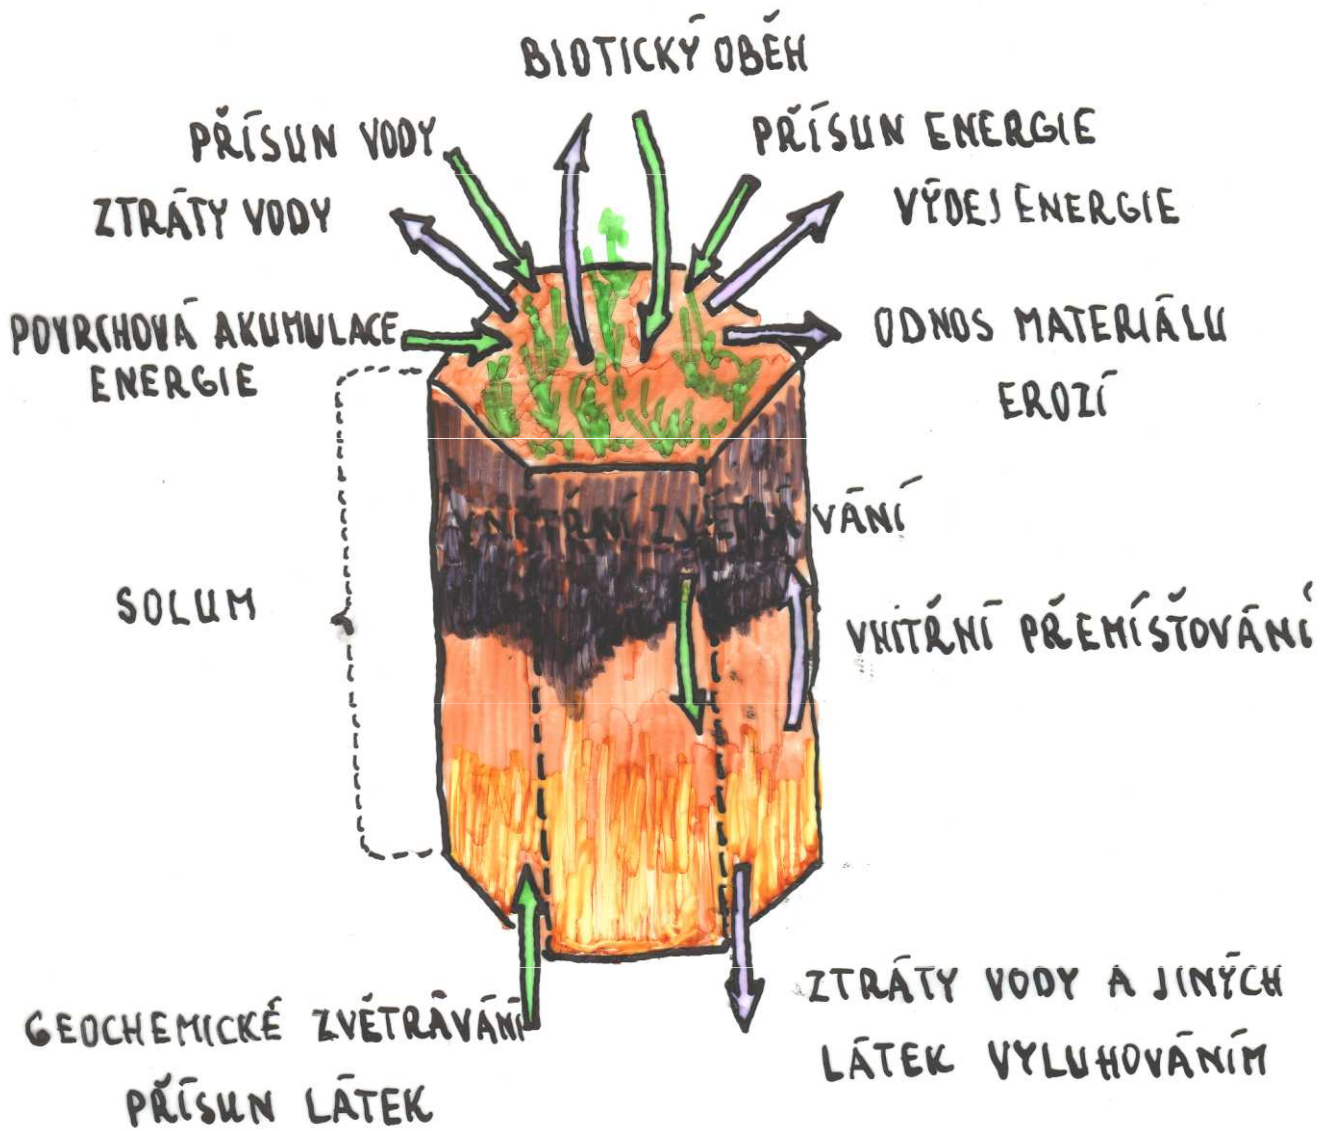 BIOTICKÝ OBĚH
PŘÍSUN VODY
PŘÍSUN ENERGIE
ZTRÁTY VODY
VÝDEJ ENERGIE
POVRCHOVÁ AKUMULACE
ENERGIE
ODNOS MATERIÁLU
EROZÍ
VNITŘNÍ ZVĚTRÁVÁNÍ
SOLUM
VNITŘNÍ PŘEMÍSŤOVÁNÍ
GEOCHEMICKÉ ZVĚTRÁVÁNÍ
PŘÍSUN LÁTEK
ZTRÁTY VODY A JINÝCH
LÁTEK VYLUHOVÁNÍM